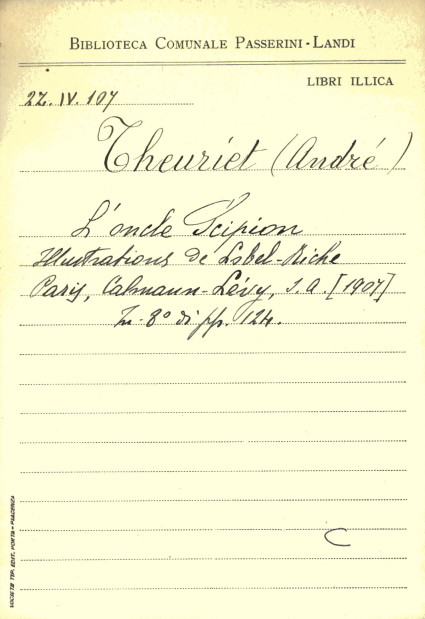 BIBLIOTECA COMUNALE PASSERINI-LANDI
LIBRI ILLICA
2Z. IV. 107
Theuriet (André)
L'oncle Scipion
Illustrations de Lobel-Riche
Paris, Calmann-Lévy, s. a. [1907]
In-8° di pp. 124.
SOCIETÀ TIP. EDIT. PORTA - PIACENZA